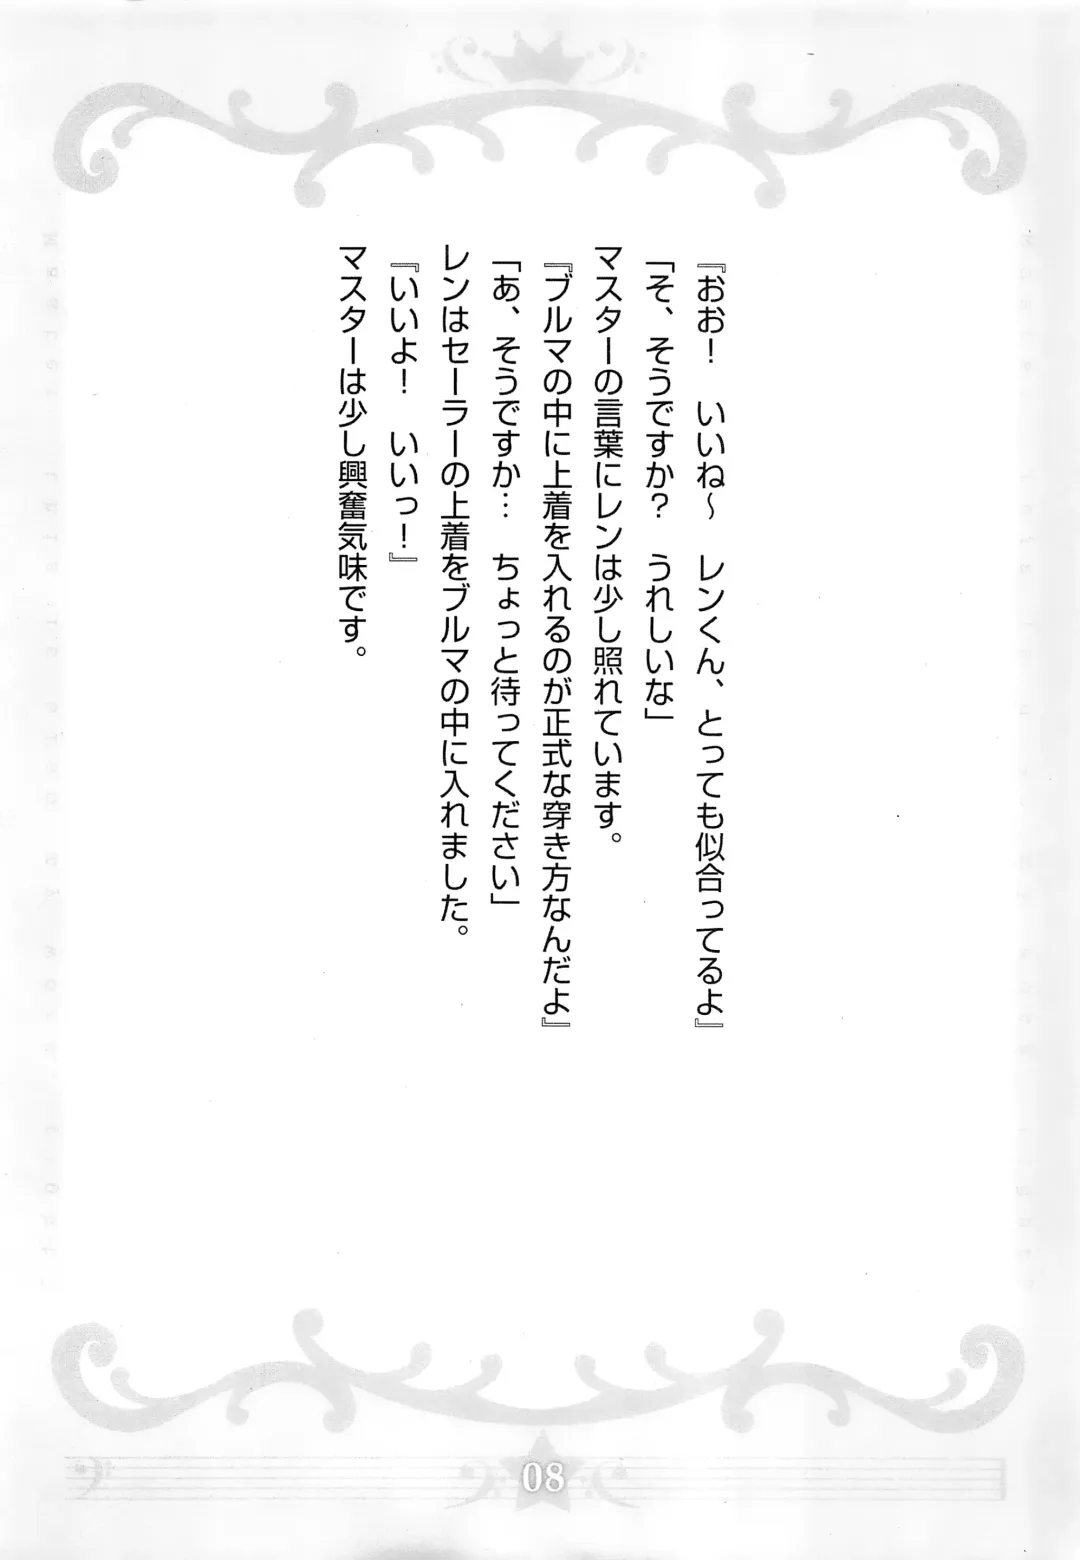 『おお！　いいね～　レンくん、とっても似合ってるよ』
「そ、そうですか？　うれしいな」
マスターの言葉にレンは少し照れています。
『ブルマの中に上着を入れるのが正式な穿き方なんだよ』
「あ、そうですか…　ちょっと待ってください」
レンはセーラーの上着をブルマの中に入れました。
『いいよ！　いいっ！』
マスターは少し興奮気味です。
08